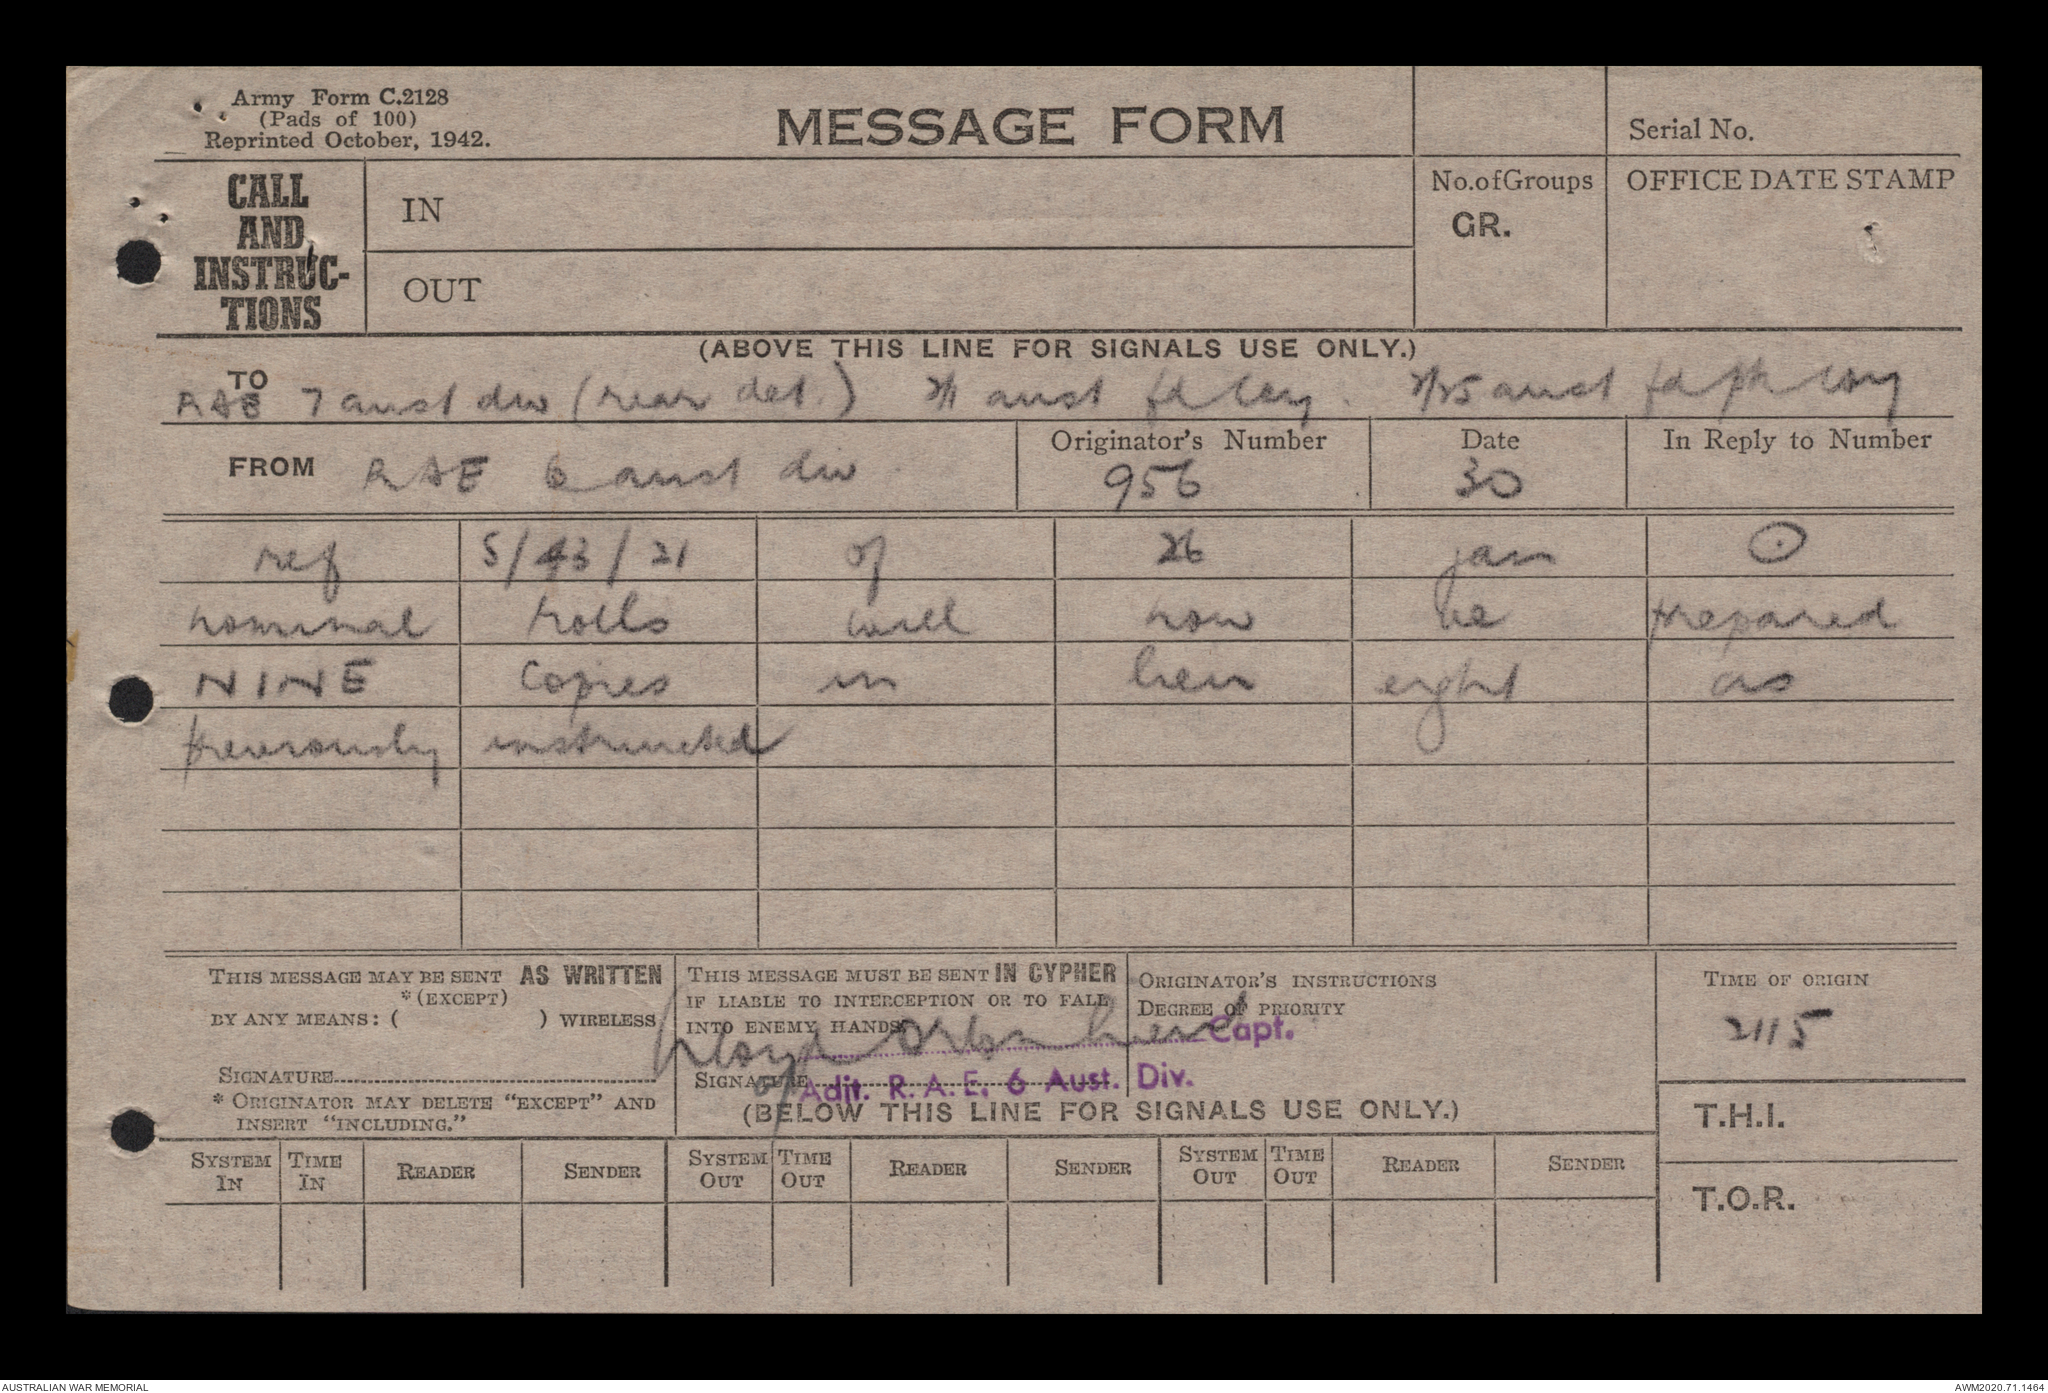 Army Form C.2128
(Pads of 100)
Reprinted October, 1942.
MESSAGE FORM
Serial No.
CALL AND INSTRUC-TIONS
IN
OUT
No.ofGroups
GR.
OFFICE DATE STAMP
(ABOVE THIS LINE FOR SIGNALS USE ONLY.)
TO
RAE 7 aust div (rear det.) 2/1 aust fd coy. 2/25 aust fd pk coy
FROM RAE 6 aust div
Originator's Number
956
Date
30
In Reply to Number
ref 5/43/21 of 26 jan ⊙
nominal rolls will now be prepared
NINE copies in lieu eight as
previously instructed
THIS MESSAGE MAY BE SENT AS WRITTEN
*(EXCEPT)
BY ANY MEANS: ( ) WIRELESS
SIGNATURE
* ORIGINATOR MAY DELETE "EXCEPT" AND
INSERT "INCLUDING."
THIS MESSAGE MUST BE SENT IN CYPHER
IF LIABLE TO INTERCEPTION OR TO FALL
INTO ENEMY HANDS
SIGNATURE
Capt.
Adjt. R.A.E. 6 Aust. Div.
ORIGINATOR'S INSTRUCTIONS
DEGREE OF PRIORITY
TIME OF ORIGIN
2115
(BELOW THIS LINE FOR SIGNALS USE ONLY.)
T.H.I.
T.O.R.
SYSTEM IN TIME IN READER SENDER SYSTEM OUT TIME OUT READER SENDER SYSTEM OUT TIME OUT READER SENDER
AUSTRALIAN WAR MEMORIAL
AWM2020.71.1464